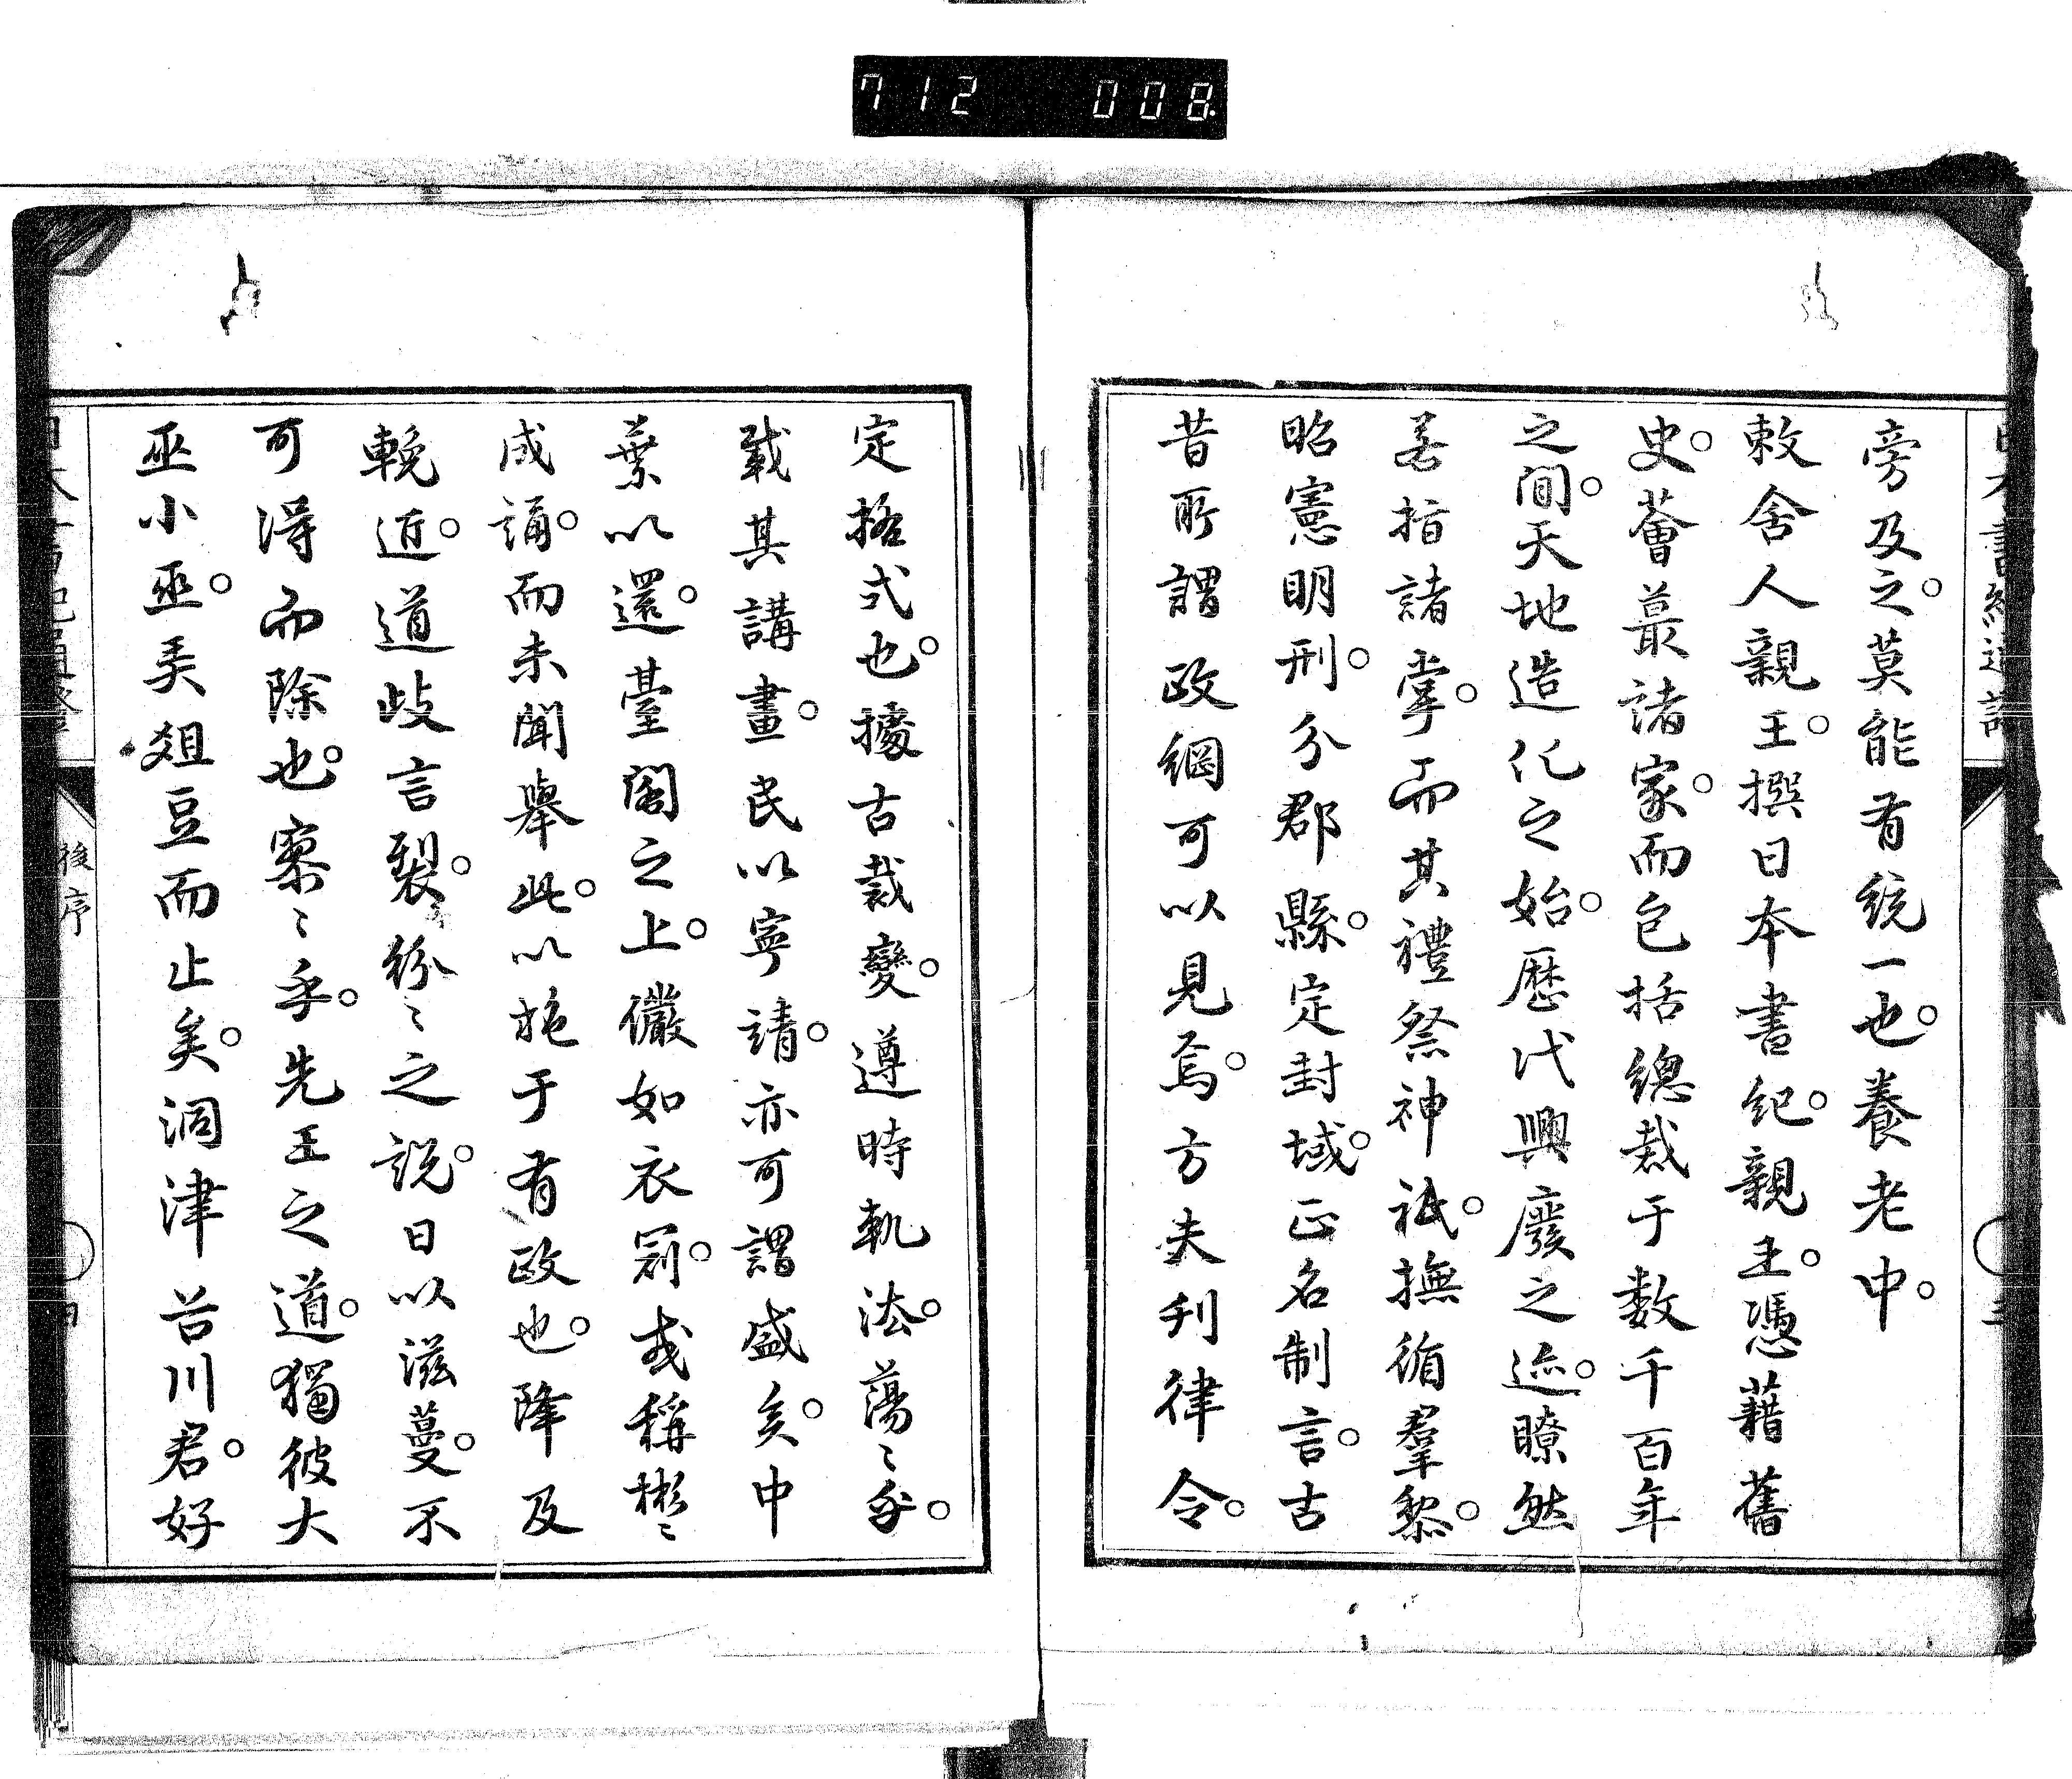 712 008.
旁及之。莫能有統一也。養老中。
敕舍人親王。撰日本書紀。親王。憑藉舊
史。薈蕞諸家。而包括總裁于數千百年
之間。天地造化之始。歷代興廢之迹。瞭然
若指諸掌。而其禮祭神祇。撫循羣黎。
昭憲明刑。分郡縣。定封域。正名制言。古
昔所謂政綱可以見焉。方夫刊律令。
定格式也。據古裁變。遵時軌法。蕩〻乎。
戴其講畫。民以寧靖。亦可謂盛矣。中
葉以還。臺閣之上。儼如衣冠。或稱彬〻
成誦。而未聞舉此。以施于有政也。降及
輓近。道歧言裂。紛〻之説。日以滋蔓。不
可得而除也。寥〻乎。先王之道。獨彼大
巫小巫。奚俎豆而止矣。洞津谷川君。好
後序